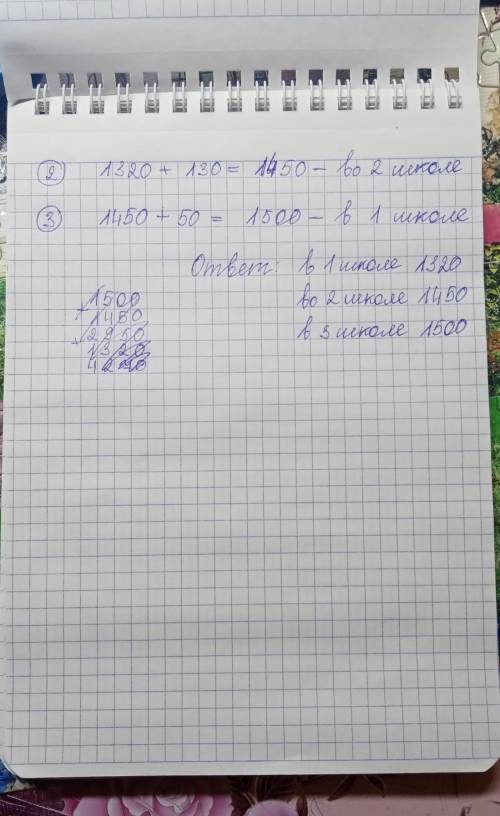 ② 1320 + 130 = 1450 – во 2 школе
③ 1450 + 50 = 1500 – в 1 школе
Ответ: в 1 школе 1320
во 2 школе 1450
в 3 школе 1500
+ 1500
1450
+ 2950
1320